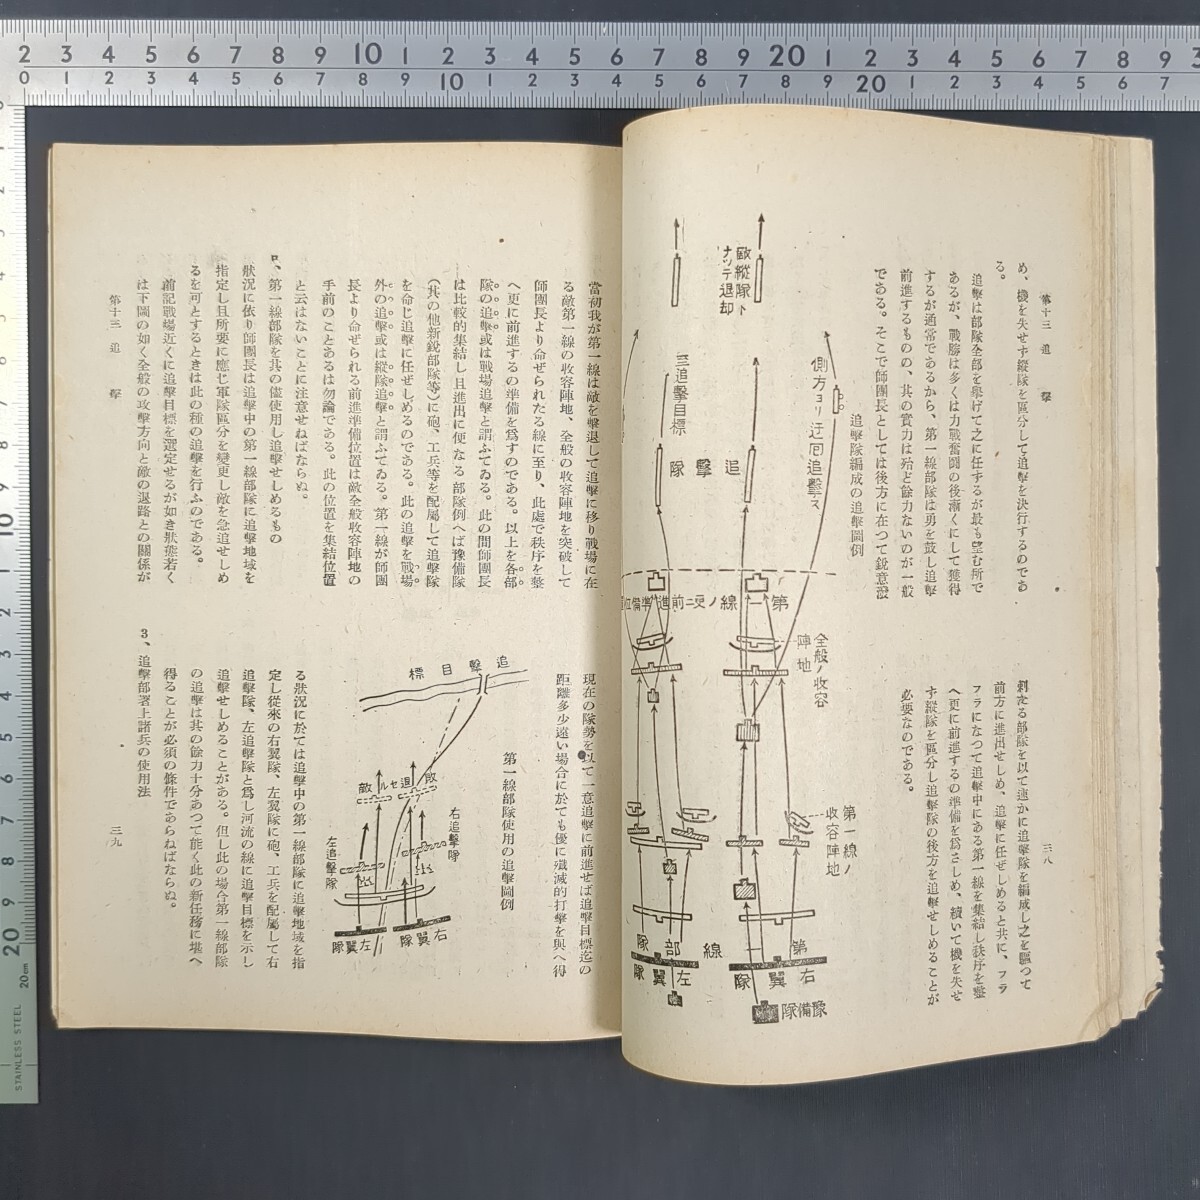 第十三 追擊
三八
め、機を失せず縱隊を區分して追擊を決行するのであ
る。
追擊は部隊全部を擧げて之に任するが最も望む所で
あるが、戰勝は多くは力戰奮鬪の後漸くにして獲得
するが通常であるから、第一線部隊は勇を鼓し追擊
前進するものの、其の實力は殆と餘力ないのが一般
である。そこで師團長としては後方に在つて銳意溌
剌たる部隊を以て速かに追擊隊を編成し之を驅つて
前方に進出せしめ、追擊に任ぜしめると共に、フラ
フラになつて追擊中にある第一線を集結し秩序を整
へ更に前進するの準備を爲さしめ、續いて機を失せ
ず縱隊を區分し追擊隊の後方を追擊せしめることが
必要なのである。
追擊隊編成の追擊圖例
側方ヨリ迂回追擊ス
敵縱隊ト
ナツテ退却
追擊目標
追擊隊
第一線ノ更ニ前進準備位
全般ノ收容
陣地
第一線ノ
收容陣地
第一線部隊
右翼隊
左翼隊
豫備隊
當初我が第一線は敵を擊退して追擊に移り戰場に在
る敵第一線の收容陣地、全般の收容陣地を突破して
師團長より命ぜられたる線に至り、此處で秩序を整
へ更に前進するの準備を爲すのである。以上を各部
隊の追擊或は戰場追擊と謂ふてゐる。此の間師團長
は比較的集結し且進出に便なる部隊例へば豫備隊
(其の他新銳部隊等)に砲、工兵等を配屬して追擊隊
を命じ追擊に任ぜしめるのである。此の追擊を戰場
外の追擊或は縱隊追擊と謂ふてゐる。第一線が師團
長より命ぜられる前進準備位置は敵全般收容陣地の
手前のことあるは勿論である。此の位置を集結位置
と云はないことに注意せねばならぬ。
ロ、第一線部隊を其の儘使用し追擊せしめるもの
狀況に依り師團長は追擊中の第一線部隊に追擊地域を
指定し且所要に應じ軍隊區分を變更し敵を急追せしめ
るを可とするときは此の種の追擊を行ふのである。
前記戰場近くに追擊目標を選定せるが如き狀態若く
は下圖の如く全般の攻擊方向と敵の退路との關係が
現在の隊勢を以て一意追擊に前進せば追擊目標迄の
距離多少遠い場合に於ても優に殲滅的打擊を與へ得
第一線部隊使用の追擊圖例
追擊目標
退却セル敵
右追擊隊
左追擊隊
右翼隊
左翼隊
る狀況に於ては追擊中の第一線部隊に追擊地域を指
定し從來の右翼隊、左翼隊に砲、工兵を配屬して右
追擊隊、左追擊隊と爲し河流の線に追擊目標を示し
追擊せしめることがある。但し此の場合第一線部隊
の追擊は其の餘力十分あつて能く此の新任務に堪へ
得ることが必須の條件であらねばならぬ。
3、追擊部署上諸兵の使用法
第十三 追擊
三九
STAINLESS STEEL